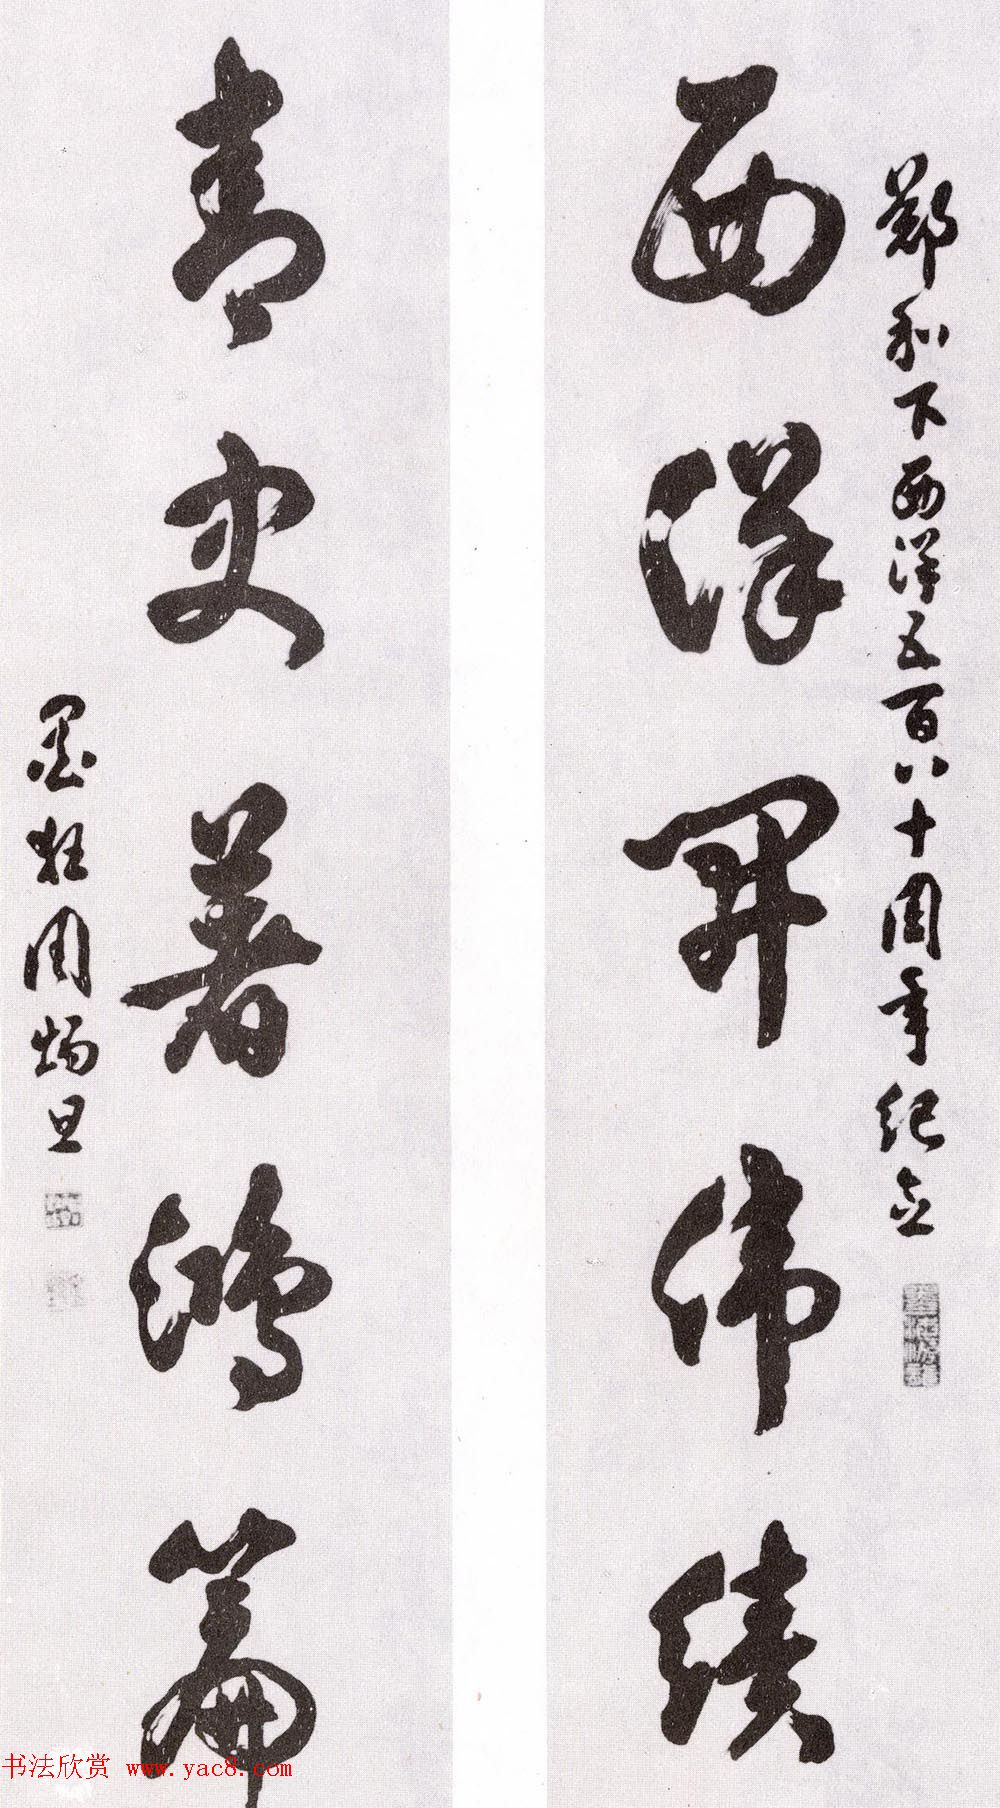 鄭和下西洋五百八十周年纪念
西洋開偉績
青史著鴻篇
墨狂周旦
书法欣赏 www.yac8.com